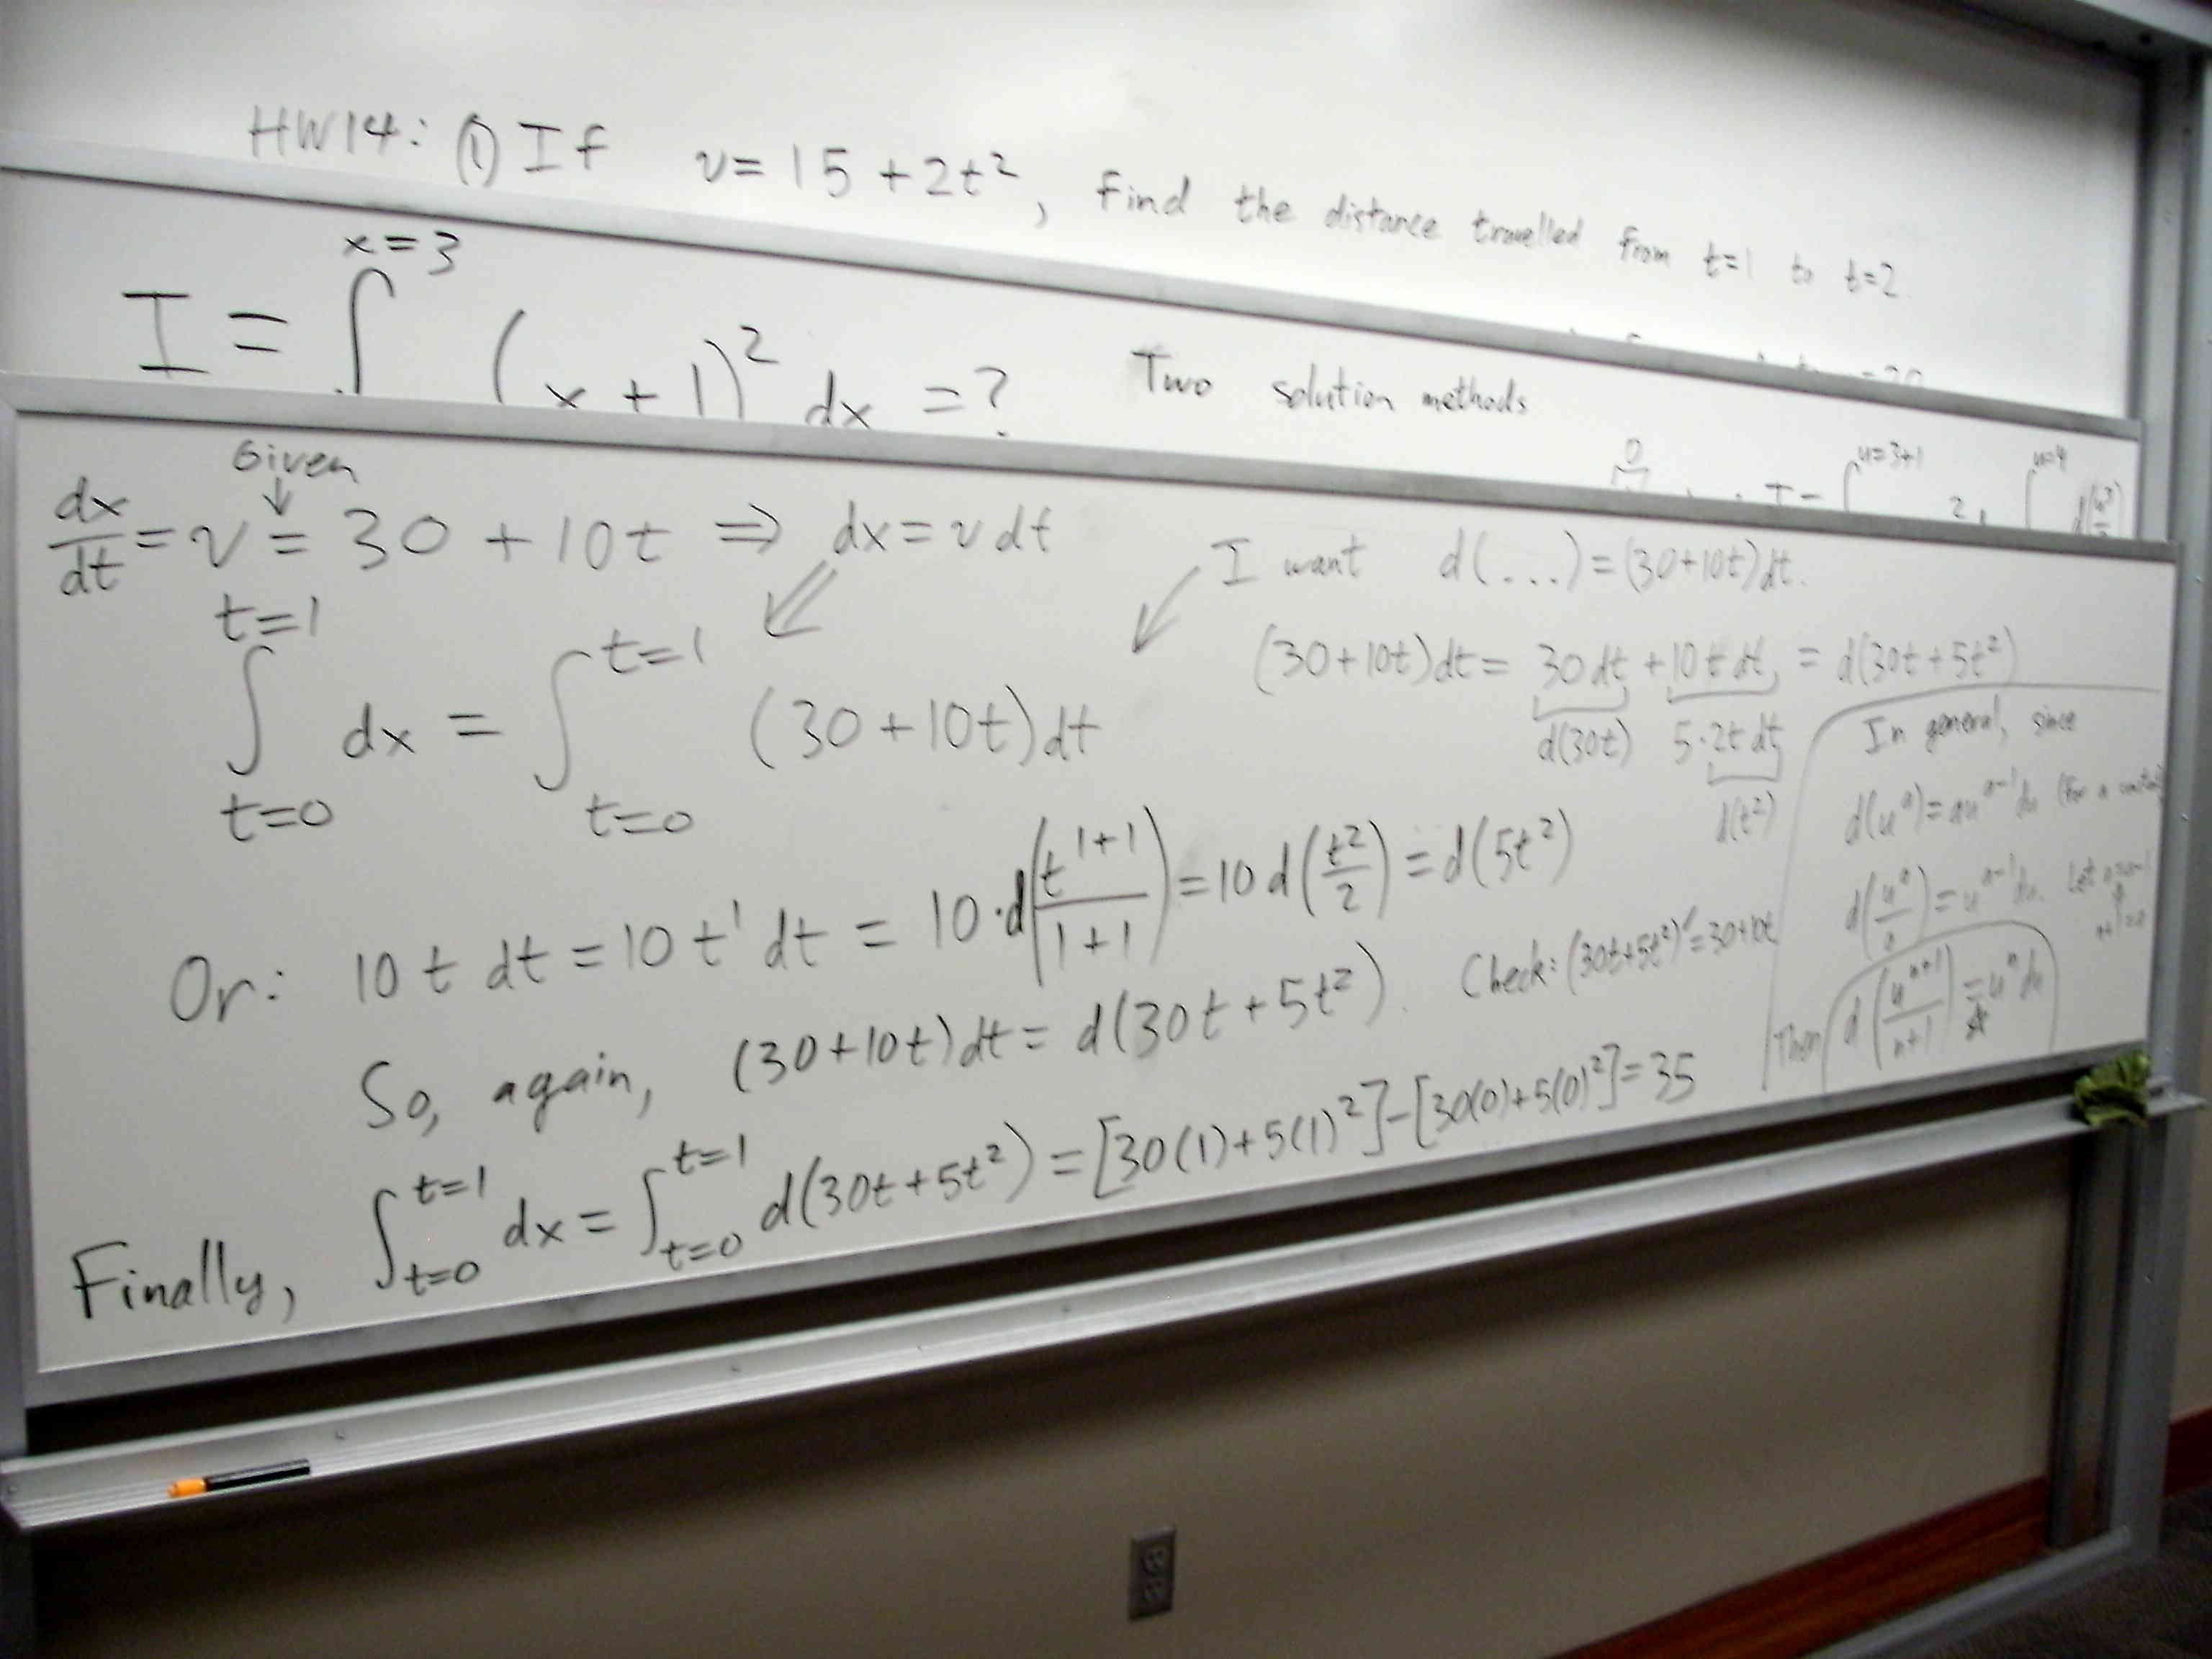 HW14: ① If v = 15 + 2t², find the distance travelled from t=1 to t=2.
x=3
I = ∫ (x + 1)² dx = ? Two solution methods
u=3+1 u=4
Given
↓
dx/dt = v = 30 + 10t ⇒ dx = v dt
I want d(...) = (30+10t)dt.
∫_{t=0}^{t=1} dx = ∫_{t=0}^{t=1} (30+10t)dt
(30+10t)dt = 30dt + 10t dt = d(30t + 5t²)
d(30t) 5·2t dt
d(t²)
In general, since
d(u^a) = au^{a-1}du (for a
d(u^a/a) = u^{a-1}du. Let
Then d(u^{n+1}/n+1) = u^n du
Or: 10t dt = 10t¹ dt = 10·d(t^{1+1}/1+1) = 10d(t²/2) = d(5t²)
So, again, (30+10t)dt = d(30t+5t²). Check: (30t+5t²)' = 30+10t
Finally, ∫_{t=0}^{t=1} dx = ∫_{t=0}^{t=1} d(30t+5t²) = [30(1)+5(1)²]-[30(0)+5(0)²] = 35